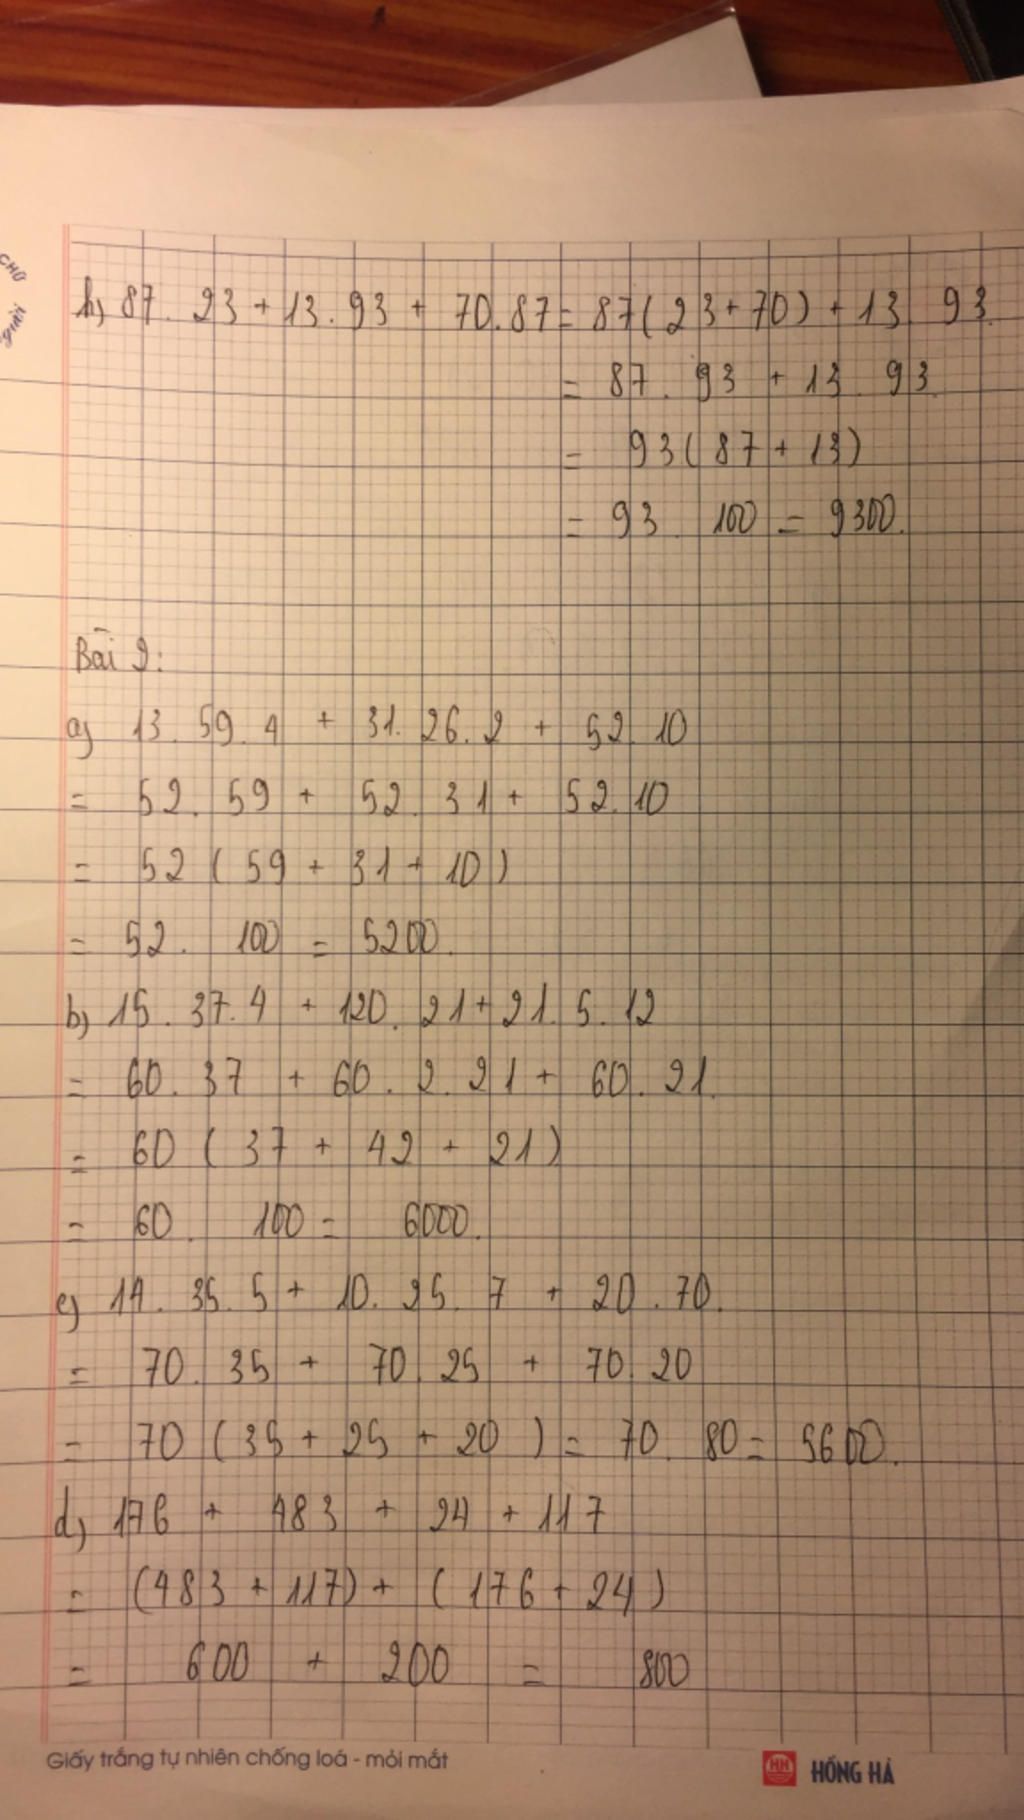 CHỮ
h) 87. 23 + 13. 93 + 70. 87 = 87(23 + 70) + 13. 93
= 87. 93 + 13. 93
= 93(87 + 13)
= 93. 100 = 9300.
Bài 2:
a) 13. 59. 4 + 31. 26. 2 + 52. 10
= 52. 59 + 52. 31 + 52. 10
= 52 (59 + 31 + 10)
= 52. 100 = 5200.
b) 15. 37. 4 + 120. 21 + 21. 5. 12
= 60. 37 + 60. 2. 21 + 60. 21.
= 60 (37 + 42 + 21)
= 60. 100 = 6000.
c) 14. 35. 5 + 10. 25. 7 + 20. 70.
= 70. 35 + 70. 25 + 70. 20
= 70 (35 + 25 + 20) = 70. 80 = 5600.
d) 176 + 483 + 24 + 117
= (483 + 117) + (176 + 24)
= 600 + 200 = 800
Giấy trắng tự nhiên chống loá - mỏi mắt
HH HỒNG HÀ